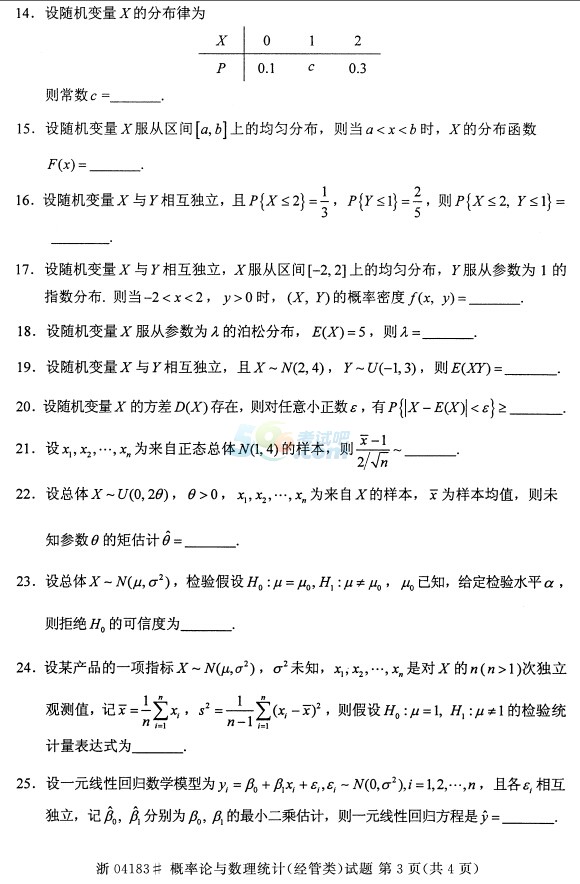 14. 设随机变量 X 的分布律为
X 0 1 2
P 0.1 c 0.3
则常数 c =______.
15. 设随机变量 X 服从区间 [a, b] 上的均匀分布，则当 a < x < b 时，X 的分布函数
F(x) = ______.
16. 设随机变量 X 与 Y 相互独立，且 P{X ≤ 2} = 1/3，P{Y ≤ 1} = 2/5，则 P{X ≤ 2, Y ≤ 1} =
______.
17. 设随机变量 X 与 Y 相互独立，X 服从区间 [−2, 2] 上的均匀分布，Y 服从参数为 1 的
指数分布. 则当 −2 < x < 2，y > 0 时，(X, Y) 的概率密度 f(x, y) = ______.
18. 设随机变量 X 服从参数为 λ 的泊松分布，E(X) = 5，则 λ = ______.
19. 设随机变量 X 与 Y 相互独立，且 X ~ N(2, 4)，Y ~ U(−1, 3)，则 E(XY) = ______.
20. 设随机变量 X 的方差 D(X) 存在，则对任意小正数 ε，有 P{|X − E(X)| < ε} ≥ ______.
21. 设 x₁, x₂, ⋯, xₙ 为来自正态总体 N(1, 4) 的样本，则 (x̄ − 1)/(2/√n) ~ ______.
22. 设总体 X ~ U(0, 2θ)，θ > 0，x₁, x₂, ⋯, xₙ 为来自 X 的样本，x̄ 为样本均值，则未
知参数 θ 的矩估计 θ̂ = ______.
23. 设总体 X ~ N(μ, σ²)，检验假设 H₀ : μ = μ₀, H₁ : μ ≠ μ₀，μ₀ 已知，给定检验水平 α，
则拒绝 H₀ 的可信度为______.
24. 设某产品的一项指标 X ~ N(μ, σ²)，σ² 未知，x₁, x₂, ⋯, xₙ 是对 X 的 n (n > 1) 次独立
观测值，记 x̄ = (1/n) ∑ᵢ₌₁ⁿ xᵢ，s² = (1/(n−1)) ∑ᵢ₌₁ⁿ (xᵢ − x̄)²，则假设 H₀ : μ = 1, H₁ : μ ≠ 1 的检验统
计量表达式为______.
25. 设一元线性回归数学模型为 yᵢ = β₀ + β₁xᵢ + εᵢ, εᵢ ~ N(0, σ²), i = 1, 2, ⋯, n，且各 εᵢ 相互
独立，记 β̂₀, β̂₁ 分别为 β₀, β₁ 的最小二乘估计，则一元线性回归方程是 ŷ = ______.
浙 04183# 概率论与数理统计(经管类)试题 第 3 页(共 4 页)